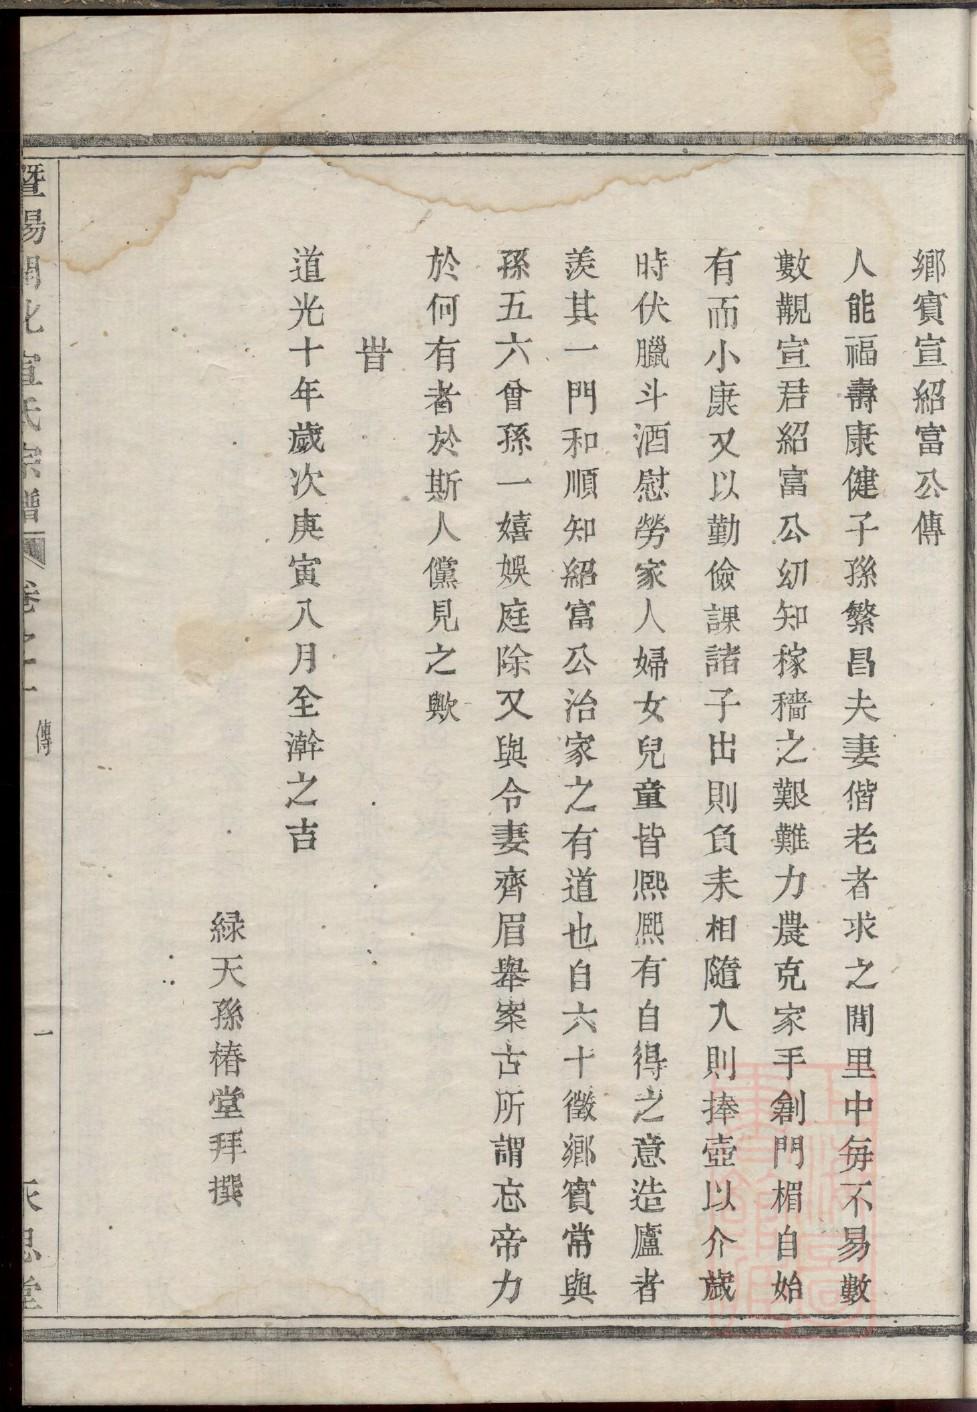 鄉賓宣紹富公傳
人能福壽康健子孫繁昌夫妻偕老者求之閭里中每不易數
數覯宣君紹富公幼知稼穡之艱難力農克家手創門楣自始
有而小康又以勤儉課諸子出則負耒相隨入則捧壺以介歲
時伏臘斗酒慰勞家人婦女兒童皆熙熙有自得之意造廬者
羨其一門和順知紹富公治家之有道也自六十徵鄉賓常與
孫五六曾孫一嬉娛庭除又與令妻齊眉舉案古所謂忘帝力
於何有者於斯人儻見之歟
旹
道光十年歲次庚寅八月全澣之吉
緑天孫椿堂拜撰
暨陽開化宣氏宗譜
卷之
傳
一
思堂